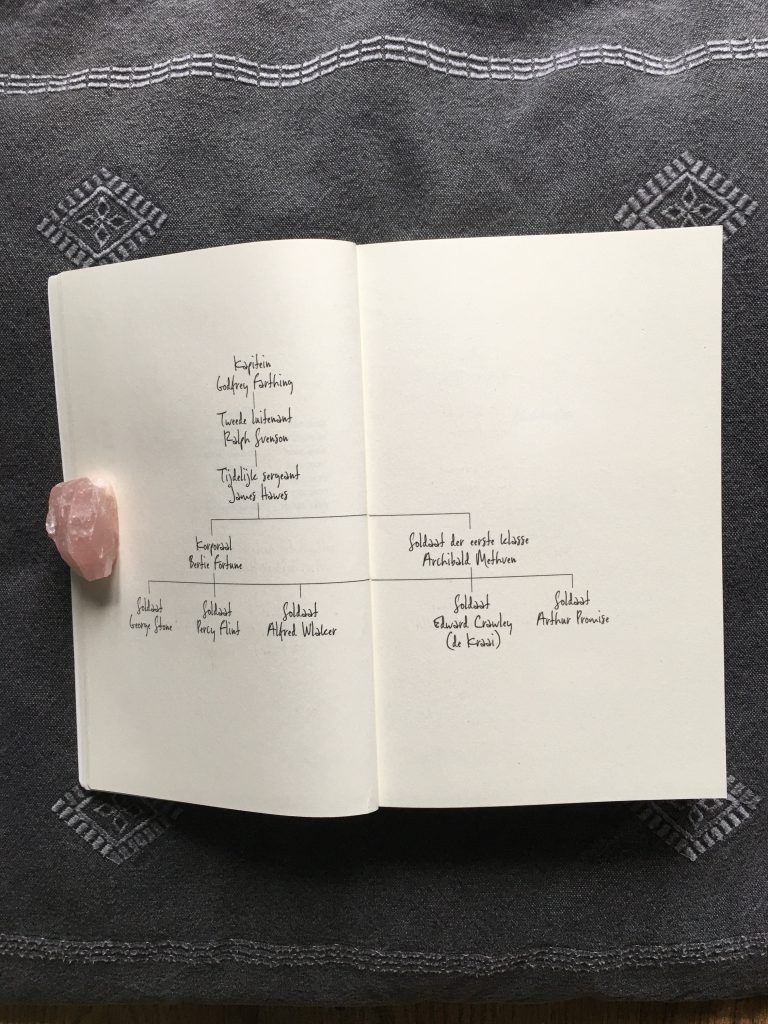 Kapitein
Godfrey Farthing
Tweede luitenant
Ralph Svenson
Tijdelijk sergeant
James Hawes
Korporaal
Bertie Fortune
Soldaat der eerste klasse
Archibald Methven
Soldaat
George Stone
Soldaat
Percy Flint
Soldaat
Alfred Wlaker
Soldaat
Edward Crawley
(de Kraai)
Soldaat
Arthur Promise